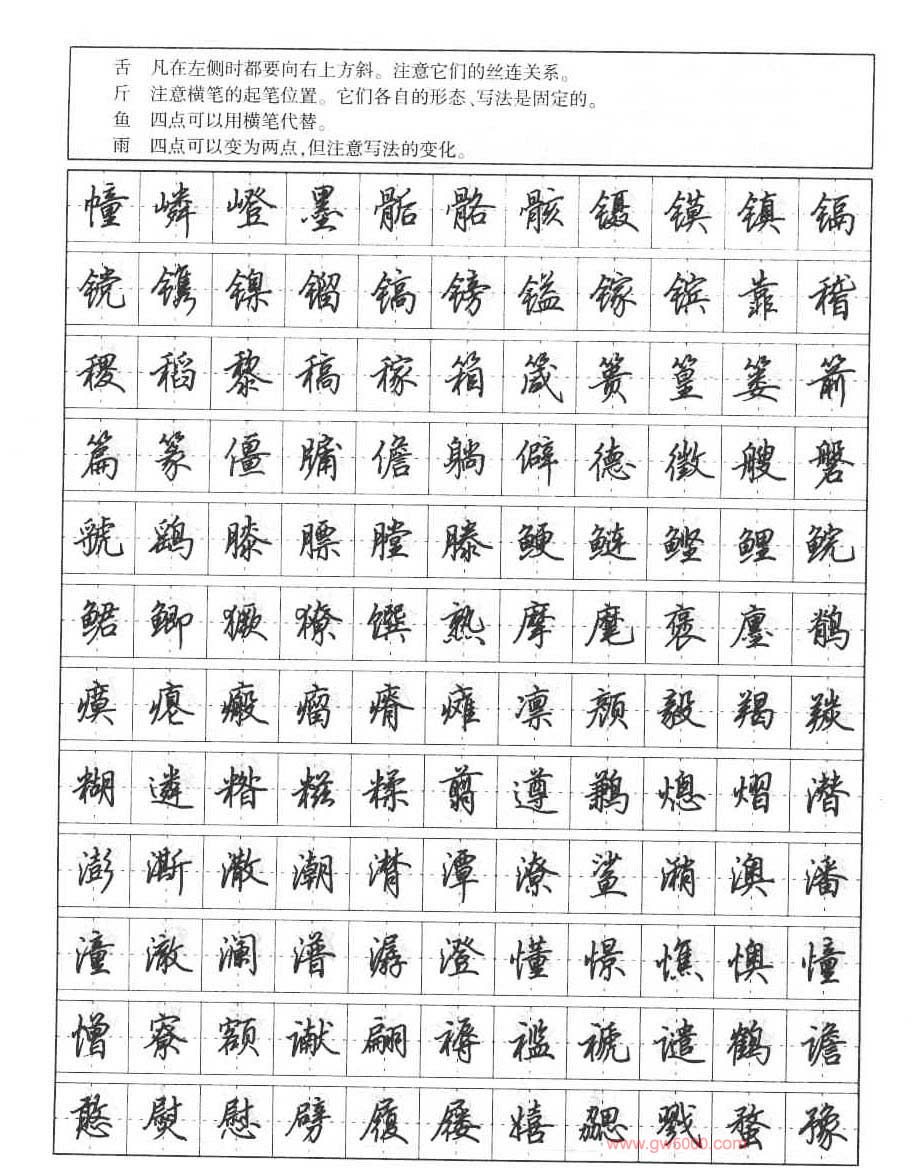 舌 凡在左侧时都要向右上方斜。注意它们的丝连关系。
斤 注意横笔的起笔位置。它们各自的形态、写法是固定的。
鱼 四点可以用横笔代替。
雨 四点可以变为两点,但注意写法的变化。
幢嶙嶝墨骺骼骸镊镆镇镉
镋镌镍镏镐镑镒镓镔靠稽
稷稻黎稿稼箱箴篑篁篓箭
篇篆僵牖儋躺僻德徵艘磐
虢鹞膝膘膛滕鲠鲢鲣鲤鲩
鲪鲫獗獠馔熟摩麾褒廛鹡
瘼瘪瘢瘤瘠瘫凛颜毅羯羰
糊遴糌糍糅翦遵鹣熜熠潜
澎澌潵潮潸潭潦鲨潲澳潘
潼澈澜潽潺澄懂憬憔懊憧
憎寮额谳翩褥褴褫谴鹤谵
憨熨慰劈履屦嬉勰戮蝥豫
www.gw6000.com